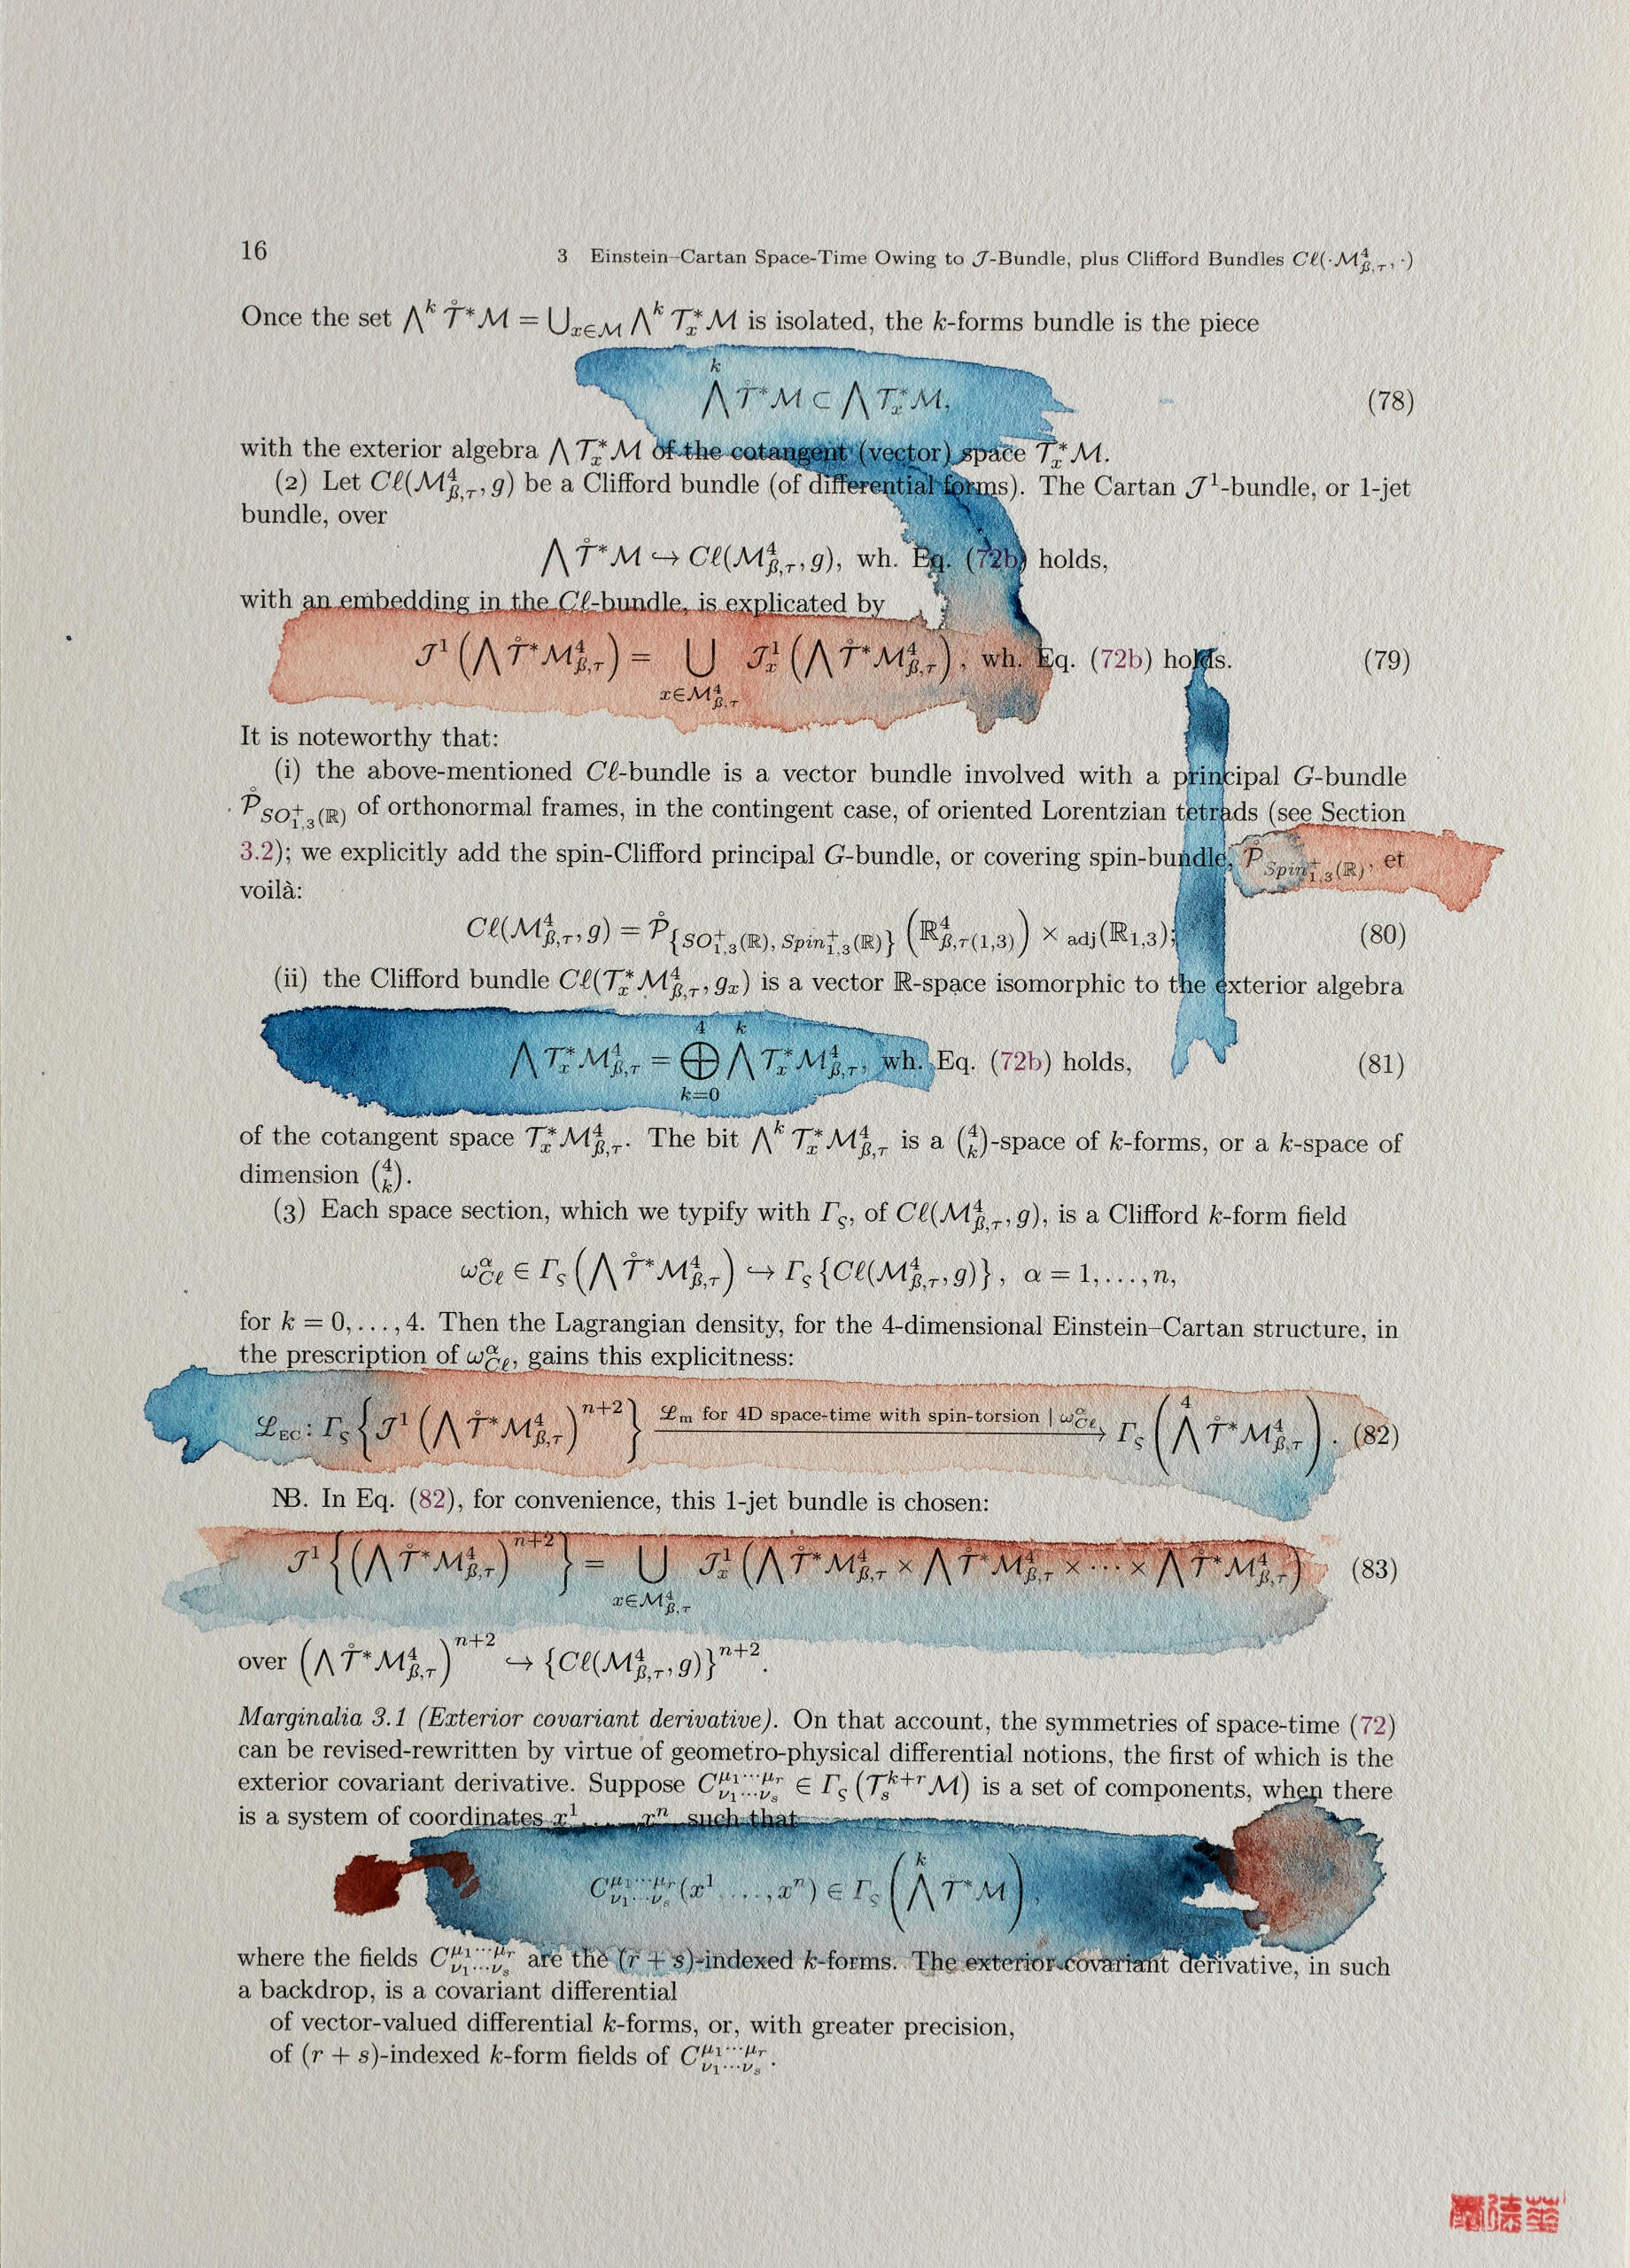 16
3 Einstein–Cartan Space-Time Owing to 𝒥-Bundle, plus Clifford Bundles Cℓ(·ℳ⁴_{β,τ}, ·)
Once the set ⋀^k 𝒯̊*ℳ = ⋃_{x∈ℳ} ⋀^k 𝒯*_xℳ is isolated, the k-forms bundle is the piece
⋀^k 𝒯̊*ℳ ⊂ ⋀ 𝒯*_xℳ, (78)
with the exterior algebra ⋀ 𝒯*_xℳ of the cotangent (vector) space 𝒯*_xℳ.
(2) Let Cℓ(ℳ⁴_{β,τ}, g) be a Clifford bundle (of differential forms). The Cartan 𝒥¹-bundle, or 1-jet
bundle, over
⋀ 𝒯̊*ℳ ↪ Cℓ(ℳ⁴_{β,τ}, g), wh. Eq. (72b) holds,
with an embedding in the Cℓ-bundle, is explicated by
𝒥¹(⋀ 𝒯̊*ℳ⁴_{β,τ}) = ⋃_{x∈ℳ⁴_{β,τ}} 𝒥¹_x(⋀ 𝒯̊*ℳ⁴_{β,τ}), wh. Eq. (72b) holds. (79)
It is noteworthy that:
(i) the above-mentioned Cℓ-bundle is a vector bundle involved with a principal G-bundle
𝒫̊_{SO⁺_{1,3}(ℝ)} of orthonormal frames, in the contingent case, of oriented Lorentzian tetrads (see Section
3.2); we explicitly add the spin-Clifford principal G-bundle, or covering spin-bundle, 𝒫̊_{Spin⁺_{1,3}(ℝ)}, et
voilà:
Cℓ(ℳ⁴_{β,τ}, g) = 𝒫̊_{{SO⁺_{1,3}(ℝ), Spin⁺_{1,3}(ℝ)}} (ℝ⁴_{β,τ(1,3)}) × _{adj}(ℝ_{1,3}); (80)
(ii) the Clifford bundle Cℓ(𝒯*_xℳ⁴_{β,τ}, g_x) is a vector ℝ-space isomorphic to the exterior algebra
⋀ 𝒯*_xℳ⁴_{β,τ} = ⨁_{k=0}^{4} ⋀^k 𝒯*_xℳ⁴_{β,τ}, wh. Eq. (72b) holds, (81)
of the cotangent space 𝒯*_xℳ⁴_{β,τ}. The bit ⋀^k 𝒯*_xℳ⁴_{β,τ} is a (4 k)-space of k-forms, or a k-space of
dimension (4 k).
(3) Each space section, which we typify with Γ_ς, of Cℓ(ℳ⁴_{β,τ}, g), is a Clifford k-form field
ω^α_{Cℓ} ∈ Γ_ς(⋀ 𝒯̊*ℳ⁴_{β,τ}) ↪ Γ_ς{Cℓ(ℳ⁴_{β,τ}, g)}, α = 1, . . . , n,
for k = 0, . . . , 4. Then the Lagrangian density, for the 4-dimensional Einstein–Cartan structure, in
the prescription of ω^α_{Cℓ}, gains this explicitness:
ℒ_{EC} : Γ_ς{𝒥¹(⋀ 𝒯̊*ℳ⁴_{β,τ})^{n+2}} ℒ_m for 4D space-time with spin-torsion | ω^α_{Cℓ} ⟶ Γ_ς(⋀^4 𝒯̊*ℳ⁴_{β,τ}). (82)
NB. In Eq. (82), for convenience, this 1-jet bundle is chosen:
𝒥¹{(⋀ 𝒯̊*ℳ⁴_{β,τ})^{n+2}} = ⋃_{x∈ℳ⁴_{β,τ}} 𝒥¹_x(⋀ 𝒯̊*ℳ⁴_{β,τ} × ⋀ 𝒯̊*ℳ⁴_{β,τ} × · · · × ⋀ 𝒯̊*ℳ⁴_{β,τ}) (83)
over (⋀ 𝒯̊*ℳ⁴_{β,τ})^{n+2} ↪ {Cℓ(ℳ⁴_{β,τ}, g)}^{n+2}.
Marginalia 3.1 (Exterior covariant derivative). On that account, the symmetries of space-time (72)
can be revised-rewritten by virtue of geometro-physical differential notions, the first of which is the
exterior covariant derivative. Suppose C^{μ₁···μ_r}_{ν₁···ν_s} ∈ Γ_ς(𝒯^{k+r}_s ℳ) is a set of components, when there
is a system of coordinates x¹, . . . , xⁿ such that
C^{μ₁···μ_r}_{ν₁···ν_s}(x¹, . . . , xⁿ) ∈ Γ_ς(⋀^k 𝒯̊*ℳ),
where the fields C^{μ₁···μ_r}_{ν₁···ν_s} are the (r + s)-indexed k-forms. The exterior covariant derivative, in such
a backdrop, is a covariant differential
of vector-valued differential k-forms, or, with greater precision,
of (r + s)-indexed k-form fields of C^{μ₁···μ_r}_{ν₁···ν_s}.